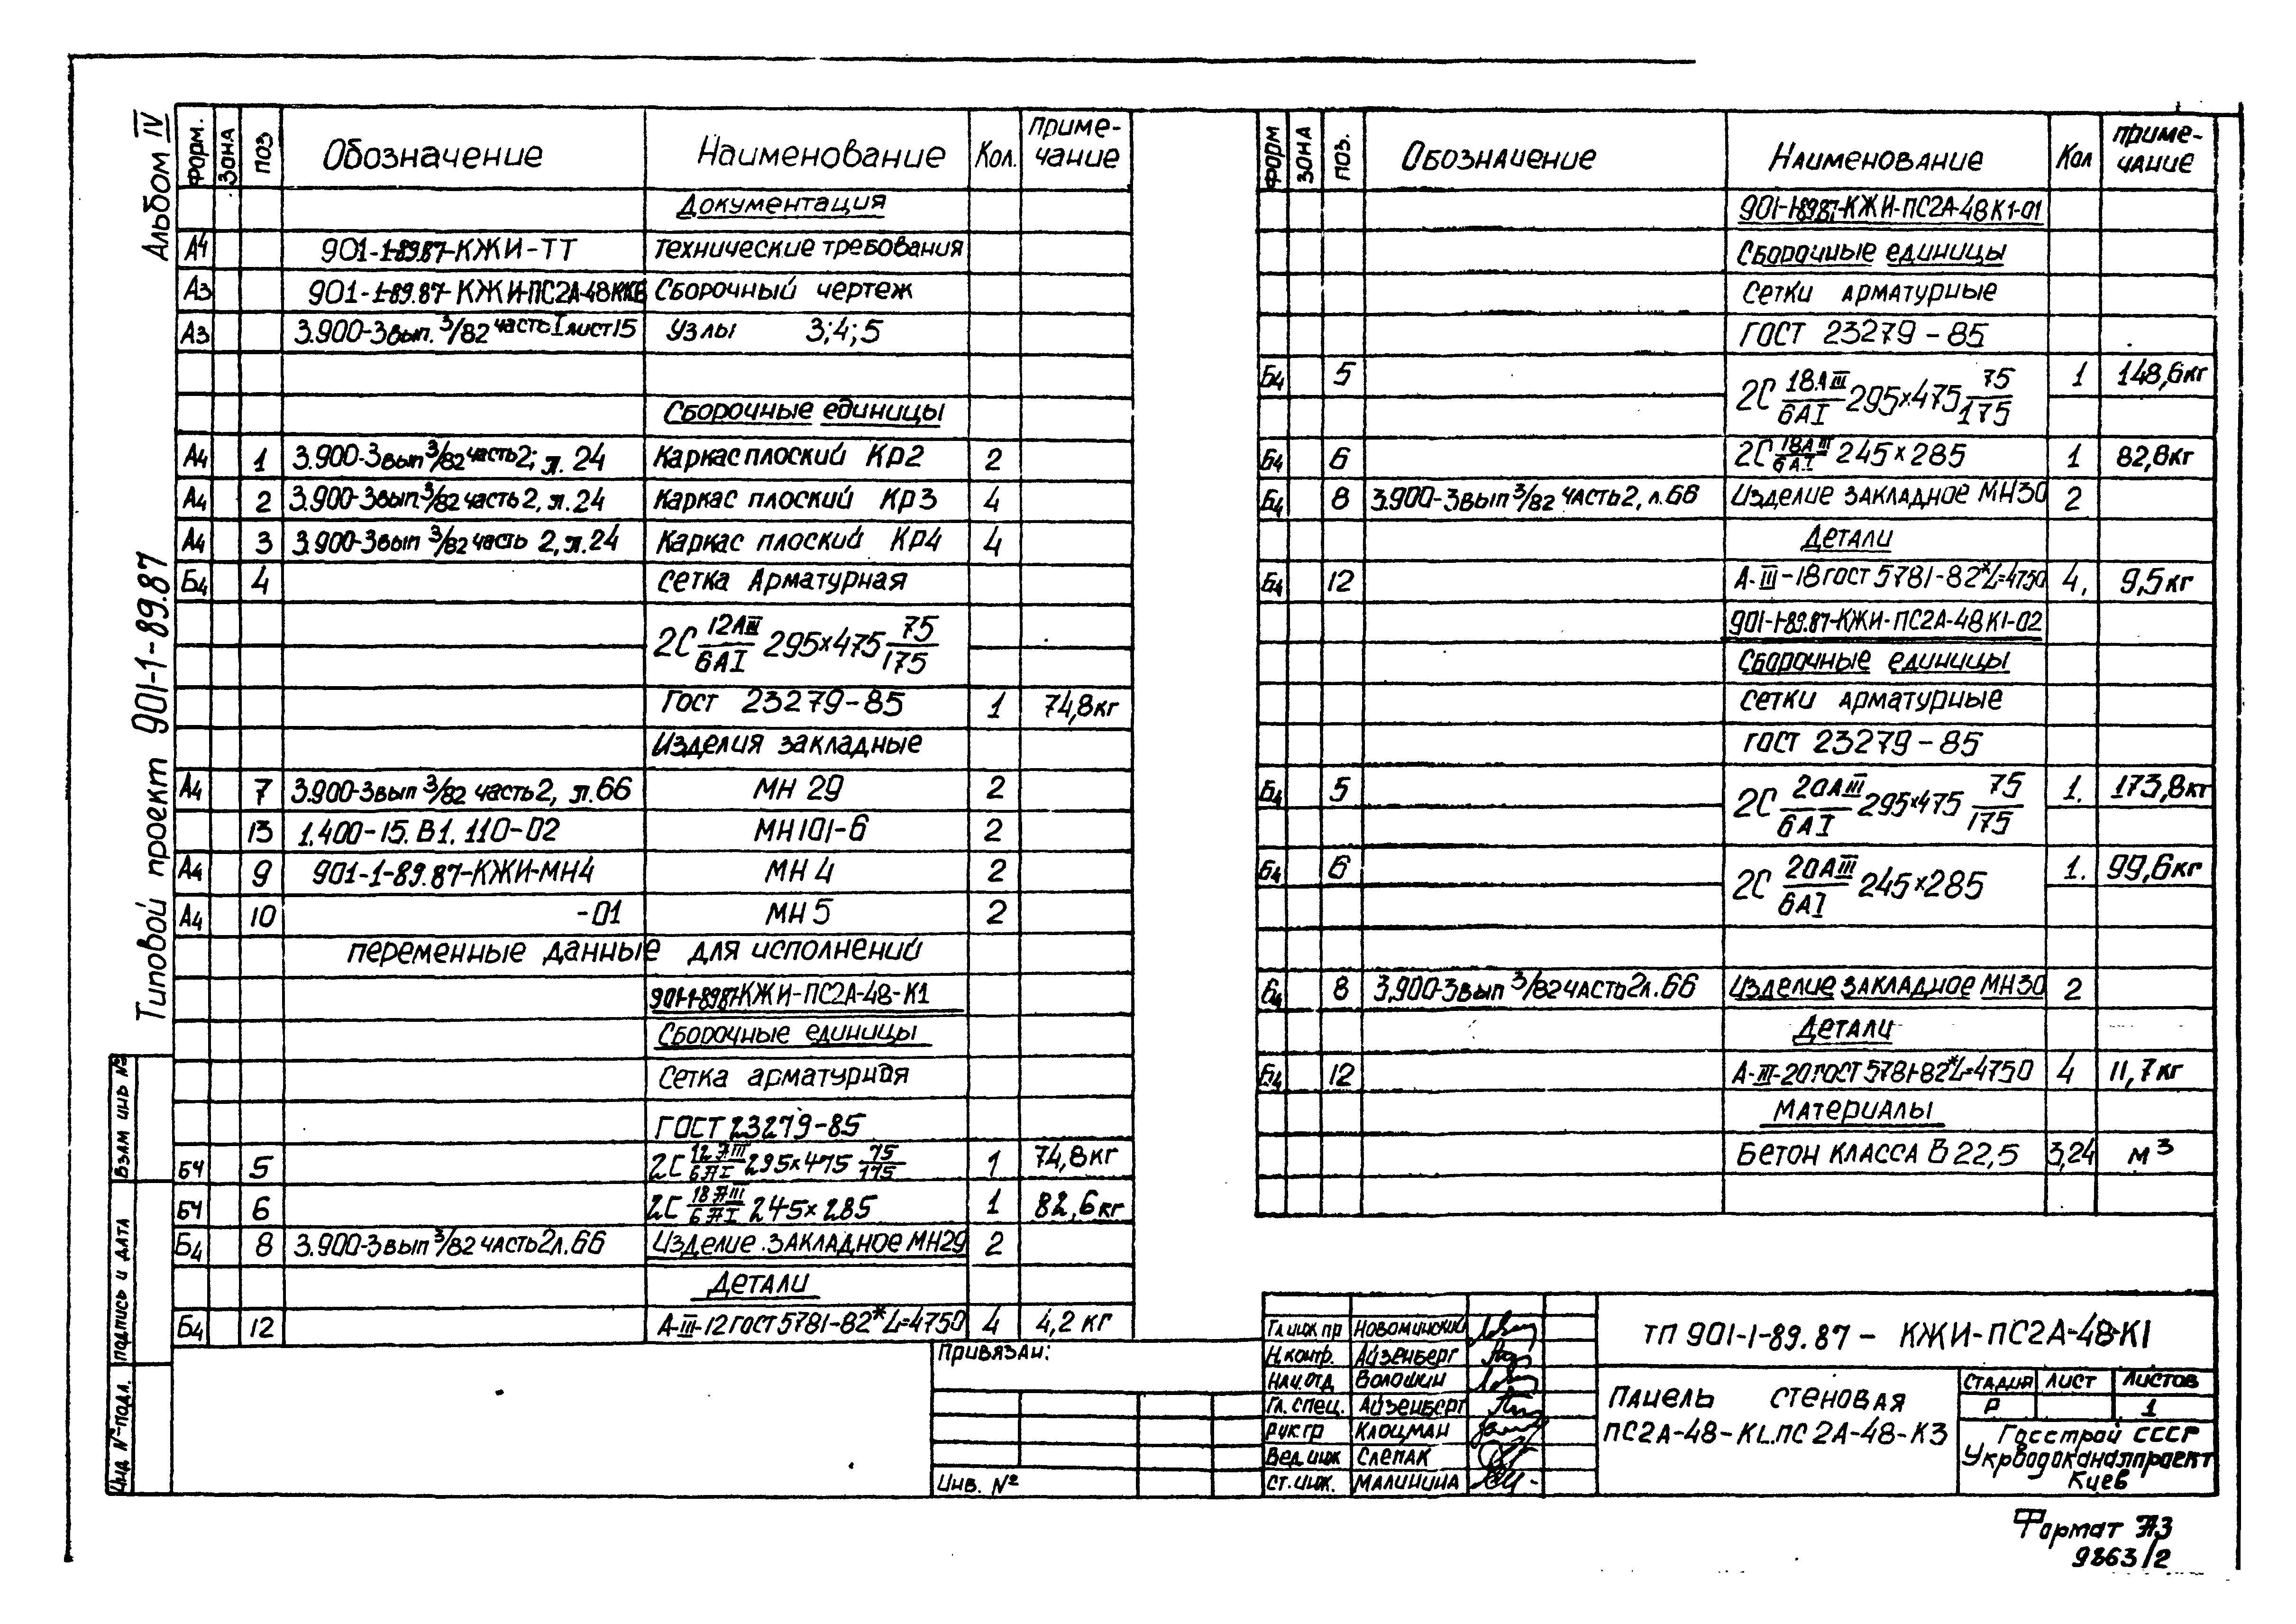 Альбом IV
Типовой проект 901-1-89.87
Форм. Зона Поз Обозначение Наименование Кол. Приме-чание
Документация
А4 901-1-89.87-КЖИ-ТТ Технические требования
А3 901-1-89.87-КЖИ-ПС2А-48К1СБ Сборочный чертеж
А3 3.900-3 вып. 3/82 часть I лист 15 Узлы 3;4;5
Сборочные единицы
А4 1 3.900-3 вып 3/82 часть 2; л. 24 Каркас плоский Кр2 2
А4 2 3.900-3 вып. 3/82 часть 2, л. 24 Каркас плоский Кр3 4
А4 3 3.900-3 вып 3/82 часть 2, л. 24 Каркас плоский Кр4 4
Б4 4 Сетка Арматурная
2С 12АIII/6АI 295×475 75/175
Гост 23279-85 1 74,8кг
Изделия закладные
А4 7 3.900-3 вып 3/82 часть 2, л. 66 МН 29 2
13 1.400-15. В1. 110-02 МН101-6 2
А4 9 901-1-89.87-КЖИ-МН4 МН 4 2
А4 10 -01 МН 5 2
переменные данные для исполнений
901-1-89.87-КЖИ-ПС2А-48-К1
Сборочные единицы
Сетка арматурная
ГОСТ 23279-85
Б4 5 2С 12АIII/6АI 295×475 75/175 1 74,8кг
Б4 6 2С 18АIII/6АI 245×285 1 82,6кг
Б4 8 3.900-3 вып 3/82 часть 2 л. 66 Изделие закладное МН29 2
Детали
Б4 12 А-III-12 ГОСТ 5781-82* L=4750 4 4,2 кг
Форм Зона Поз. Обозначение Наименование Кол Приме-чание
901-1-89.87-КЖИ-ПС2А-48К1-01
Сборочные единицы
Сетки арматурные
ГОСТ 23279-85
Б4 5 2С 18АIII/6АI 295×475 75/175 1 148,6кг
Б4 6 2С 18АIII/6АI 245×285 1 82,8кг
Б4 8 3.900-3 вып 3/82 часть 2, л. 66 Изделие закладное МН30 2
Детали
Б4 12 А-III-18 ГОСТ 5781-82* L=4750 4, 9,5кг
901-1-89.87-КЖИ-ПС2А-48К1-02
Сборочные единицы
Сетки арматурные
ГОСТ 23279-85
Б4 5 2С 20АIII/6АI 295×475 75/175 1. 173,8кг
Б4 6 2С 20АIII/6АI 245×285 1. 99,6кг
Б4 8 3.900-3 вып 3/82 часть 2 л. 66 Изделие закладное МН30 2
Детали
Б4 12 А-III-20 ГОСТ 5781-82* L=4750 4 11,7кг
Материалы
Бетон класса В 22,5 3,24 м3
Взам инв №
Подпись и дата
Инв № подл.
Привязан:
Инв. №
Гл инж пр Новоминский
Н. контр. Айзенберг
Нач. отд Волошин
Гл. спец. Айзенберг
Рук гр Клоцман
Вед. инж Слепак
Ст. инж. Малинина
ТП 901-1-89.87 - КЖИ-ПС2А-48-К1
Панель стеновая
ПС2А-48-К1...ПС2А-48-К3
Стадия Лист Листов
Р 1
Госстрой СССР
Укрводоканалпроект
Киев
Формат А3
9863/2